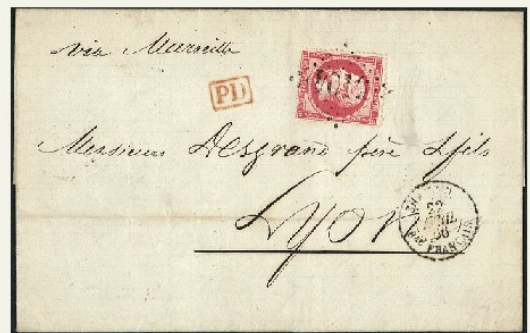 via Marseille
PD
Messieurs Desgrand père & fils
Lyon
22
AVRIL
66
PAQ FRANÇAIS